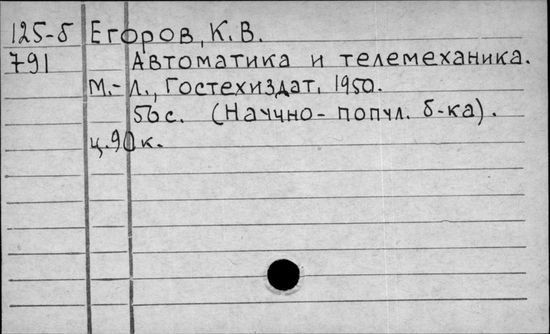 125-б Егоров, К. В.
791 Автоматика и телемеханика.
М.-Л., Гостехиздат, 1950.
56 с. (Научно-попул. б-ка).
ц. 90 к.